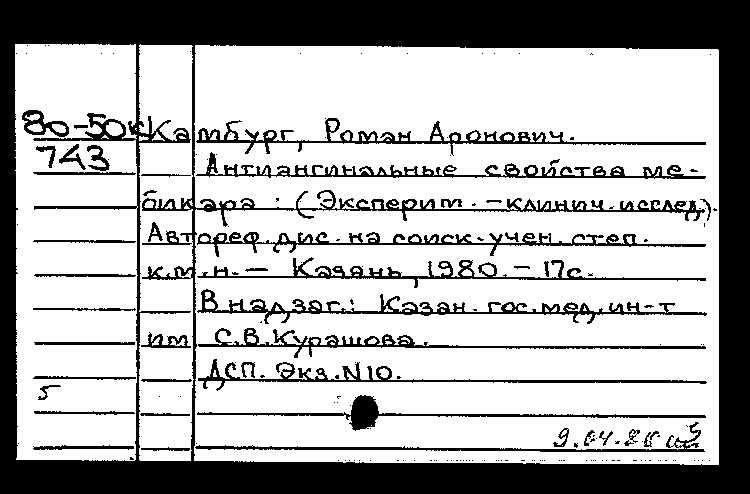 80-50к Камбург, Роман Аронович.
743 Антиангинальные свойства ме-
бикара : (Эксперим. - клинич. исслед.).
Автореф. дис. на соиск. учен. степ.
к.м.н. - Казань, 1980. - 17с.
В надзаг.: Казан. гос. мед. ин-т
им С.В.Курашова.
ДСП. Экз. N10.
5
9.04.80